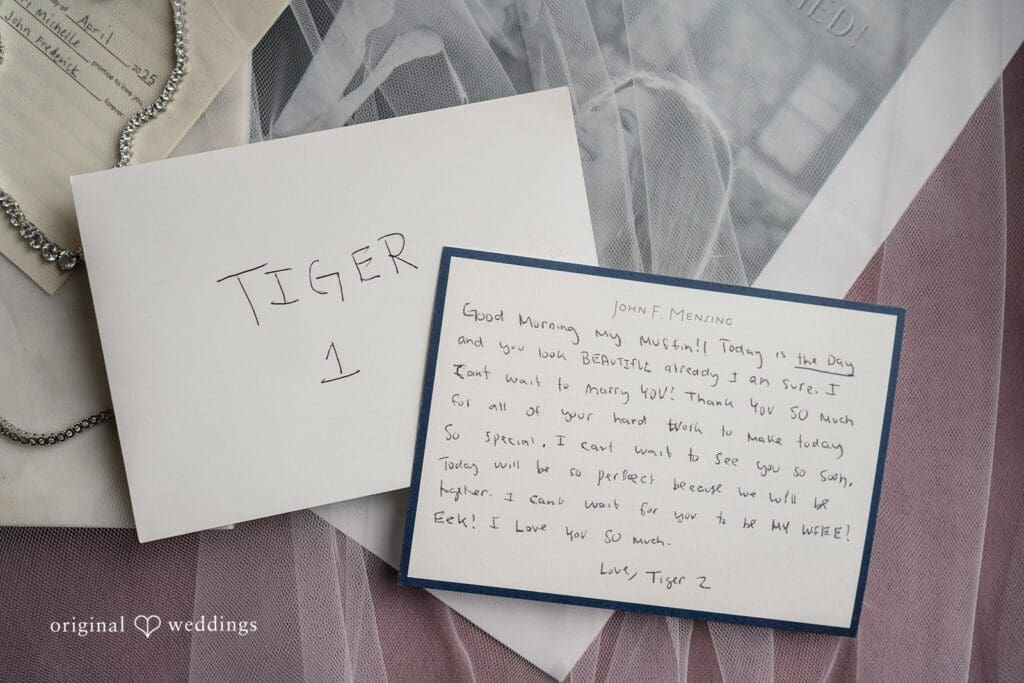 of April, 2025
Michelle
promise to love you
John Frederick
forever
MED!
TIGER
1
JOHN F. MENSING
Good Morning my muffin!! Today is the Day
and you look BEAUTIFUL already I am sure. I
Cant wait to marry YOU! Thank YOU SO much
for all of your hard work to make today
So special. I cant wait to see you so soon.
Today will be so perfect because we will be
together. I cant wait for you to be MY WIFEE!
Eek! I Love you SO much.
Love, Tiger 2
original weddings